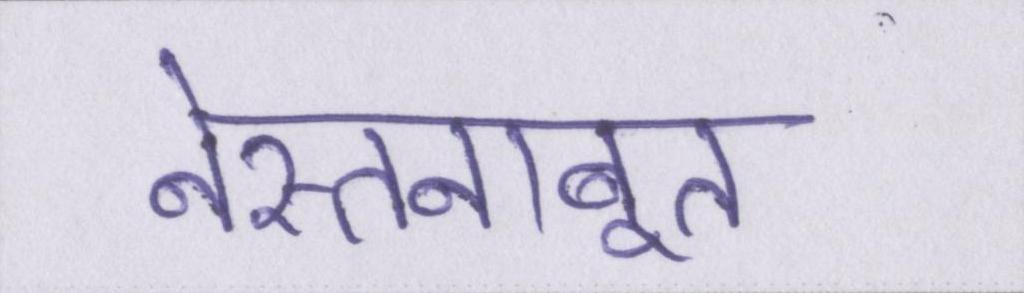 नेस्तनाबूत